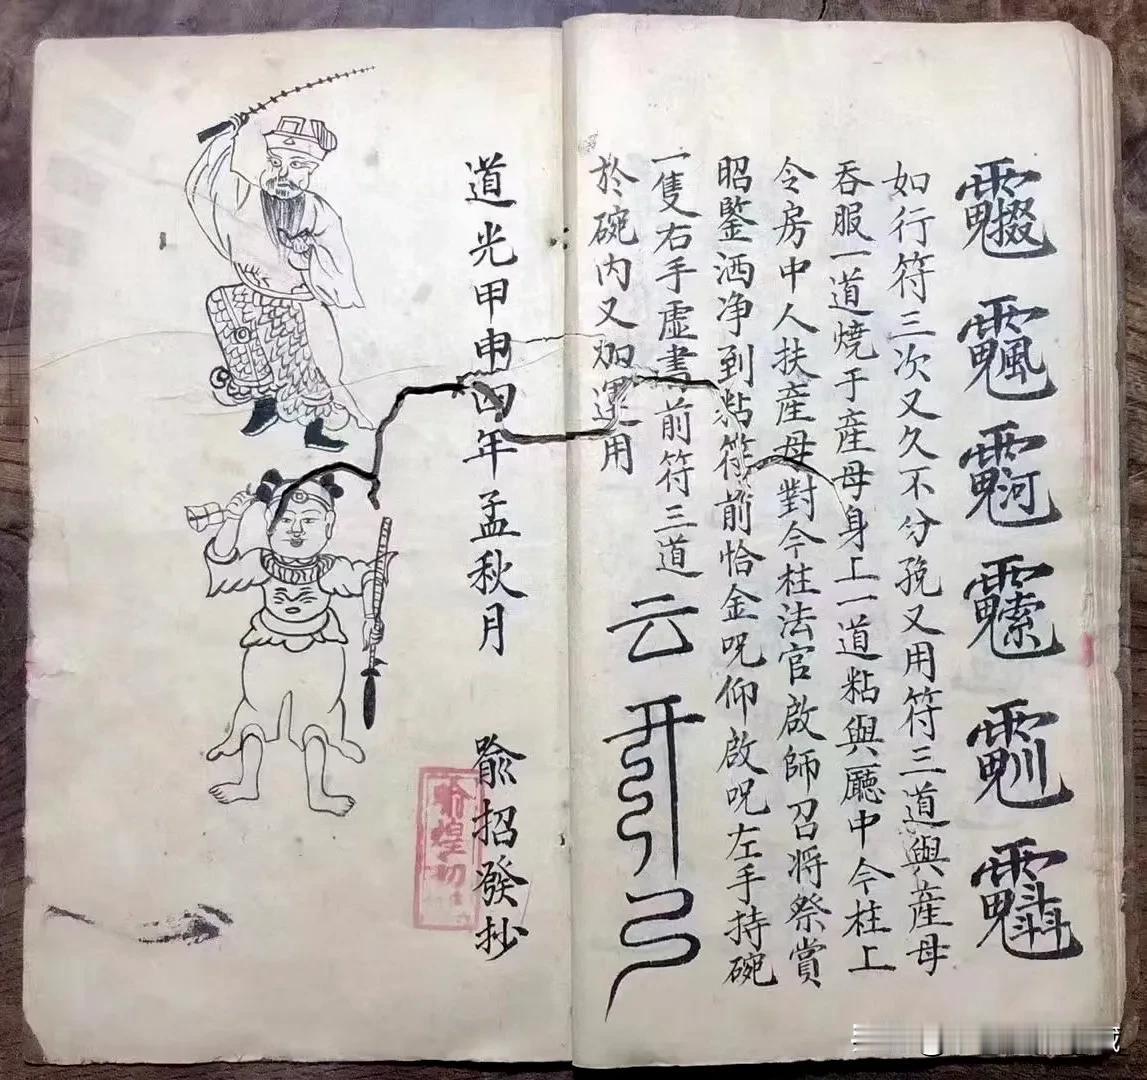 如行符三次又久不分娩又用符三道與産母
吞服一道燒于産母身上一道粘與廳中今柱上
令房中人扶産母對今柱法官啟師召将祭賞
昭鑒洒净到粘符前恰金呪仰啟呪左手持碗
一隻右手虚書前符三道
於碗内又加運用
道光甲申四年孟秋月
招發抄